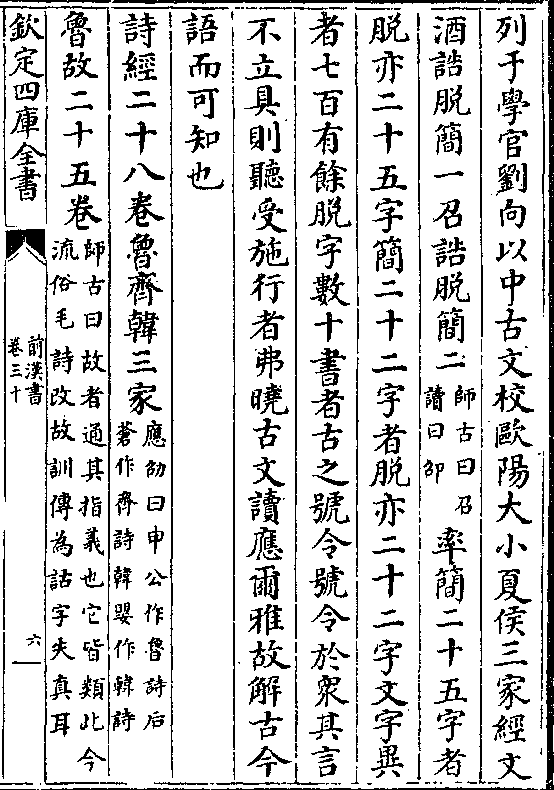 列于學官劉向以中古文校歐陽大小夏侯三家經文
酒誥脱簡一召誥脱簡二師古曰召讀曰邵率簡二十五字者
脱亦二十五字簡二十二字者脱亦二十二字文字異
者七百有餘脱字數十書者古之號令號令於衆其言
不立具則聽受施行者弗曉古文讀應爾雅故解古今
語而可知也
詩經二十八卷魯齊韓三家應劭曰申公作魯詩后蒼作齊詩韓嬰作韓詩
魯故二十五卷師古曰故者通其指義也它皆類此今流俗毛詩改故訓傳為詁字失真耳
欽定四庫全書
前漢書
卷三十
六